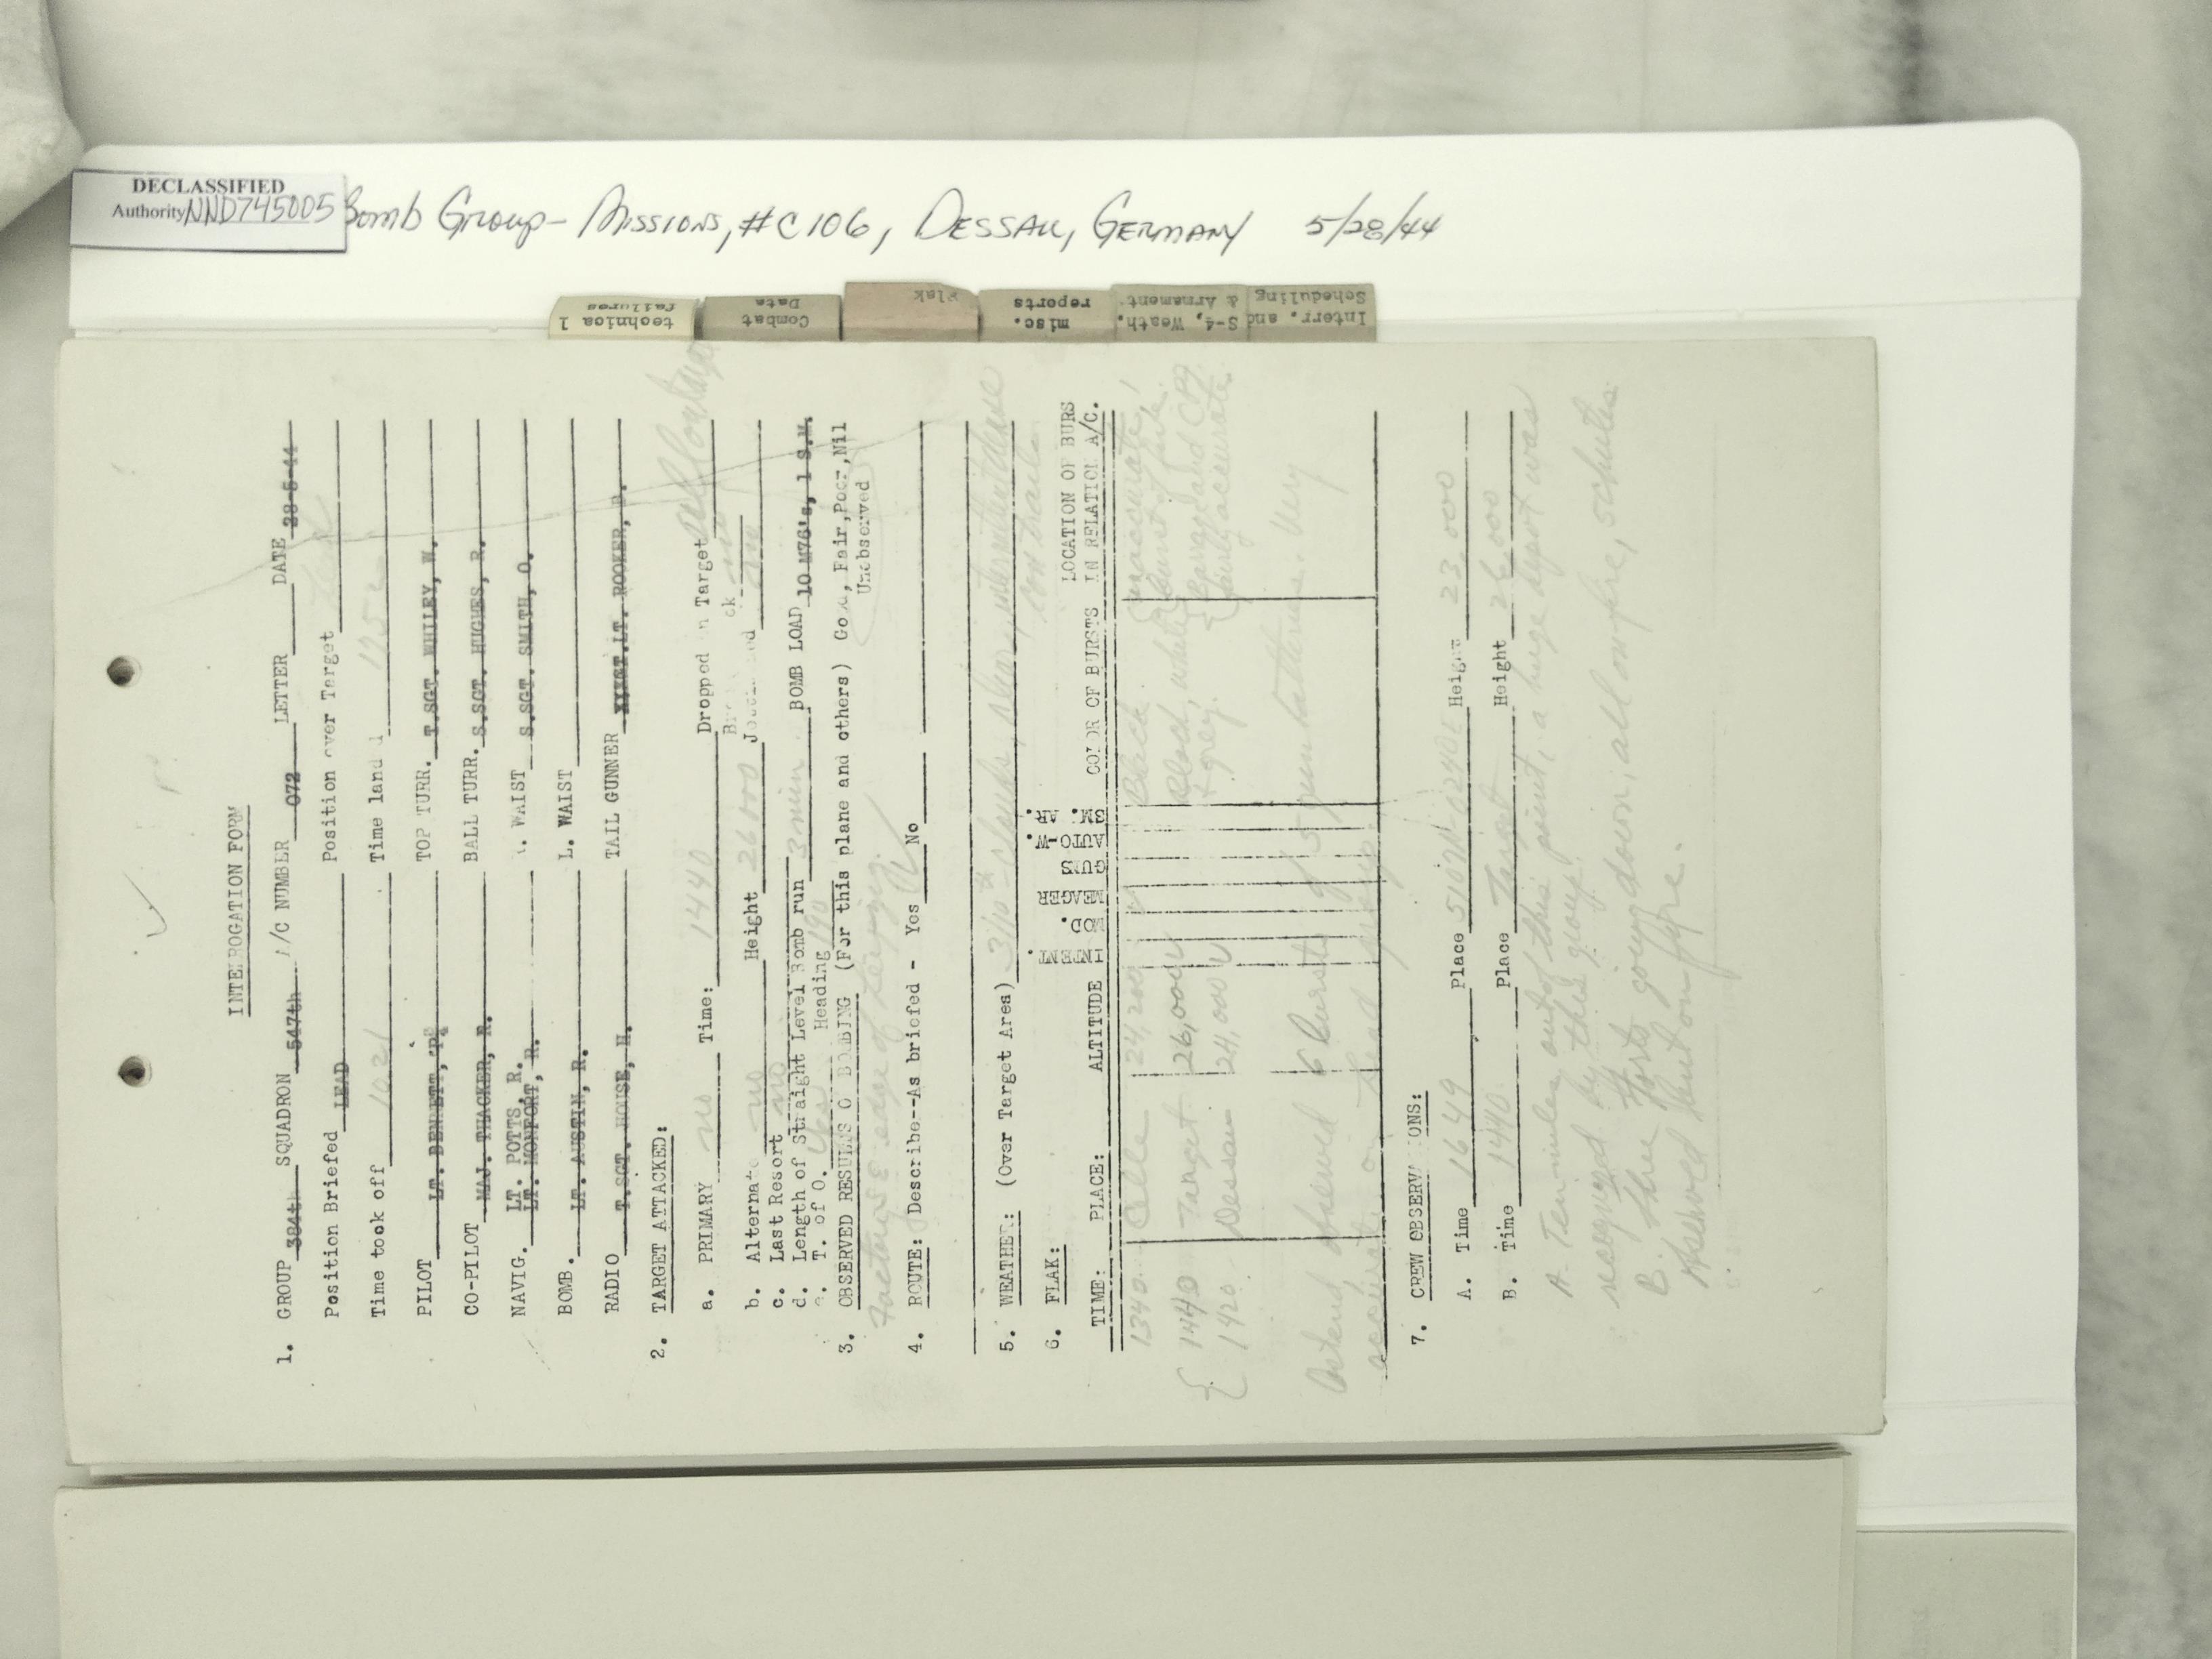 DECLASSIFIED
Authority NND745005
Bomb Group - Missions, #C106, Dessau, Germany 5/28/44
technical failures
Combat Data
Flak
misc. reports
S-4, Weath. & Armament.
Interr. and Scheduling
INTERROGATION FORM
1. GROUP 384th SQUADRON 547th A/C NUMBER 072 LETTER DATE 28-5-44
Position Briefed LEAD Position over Target Lead
Time took off 1021 Time landed
PILOT LT. BENNETT, TOP TURR. T.SGT. WHILEY, W.
CO-PILOT MAJ. THACKER, R. BALL TURR. S.SGT. HUGHES, R.
NAVIG. LT. POTTS, R. LT. MONFORT, R. WAIST S.SGT. SMITH, O.
BOMB. LT. AUSTIN, R. L. WAIST
RADIO T.SGT. HOUSE, H. TAIL GUNNER LT. ROOKER, B.
2. TARGET ATTACKED:
a. PRIMARY no Time: 1440 Dropped on Target
b. Alternate no Height 26000
c. Last Resort no
d. Length of Straight Level Bomb run 3 min BOMB LOAD 10 M76's, 1 S.M.
e. T. of O. Heading 190
3. OBSERVED RESULTS O BOMBING (For this plane and others) Good, Fair, Poor, Nil
Unobserved
Factory S E edge of Leipzig.
4. ROUTE: Describe--As briefed - Yes No
5. WEATHER: (Over Target Area) 3/10
6. FLAK: LOCATION OF BURS
TIME: PLACE: ALTITUDE INTENT. MOD. MEAGER GUNS AUTO-W. SM. AR. COLOR OF BURSTS IN RELATION A/C.
1340 Celle 24,200 Black inaccurate
1440 Target 26,000 Black, white
1420 Dessau 24,000 & grey. fairly accurate
Ostend, observed 6 bursts of 5 gun batteries. Very
accurate on lead group
7. CREW OBSERVATIONS:
A. Time 1649 Place 5107N-0240E Height 23,000
B. Time 1440 Place Target Height 26,000
A. Ten miles out of this point, a huge depot was
by this group.
B. three forts going down, all on fire, 5 chutes
observed on fire.